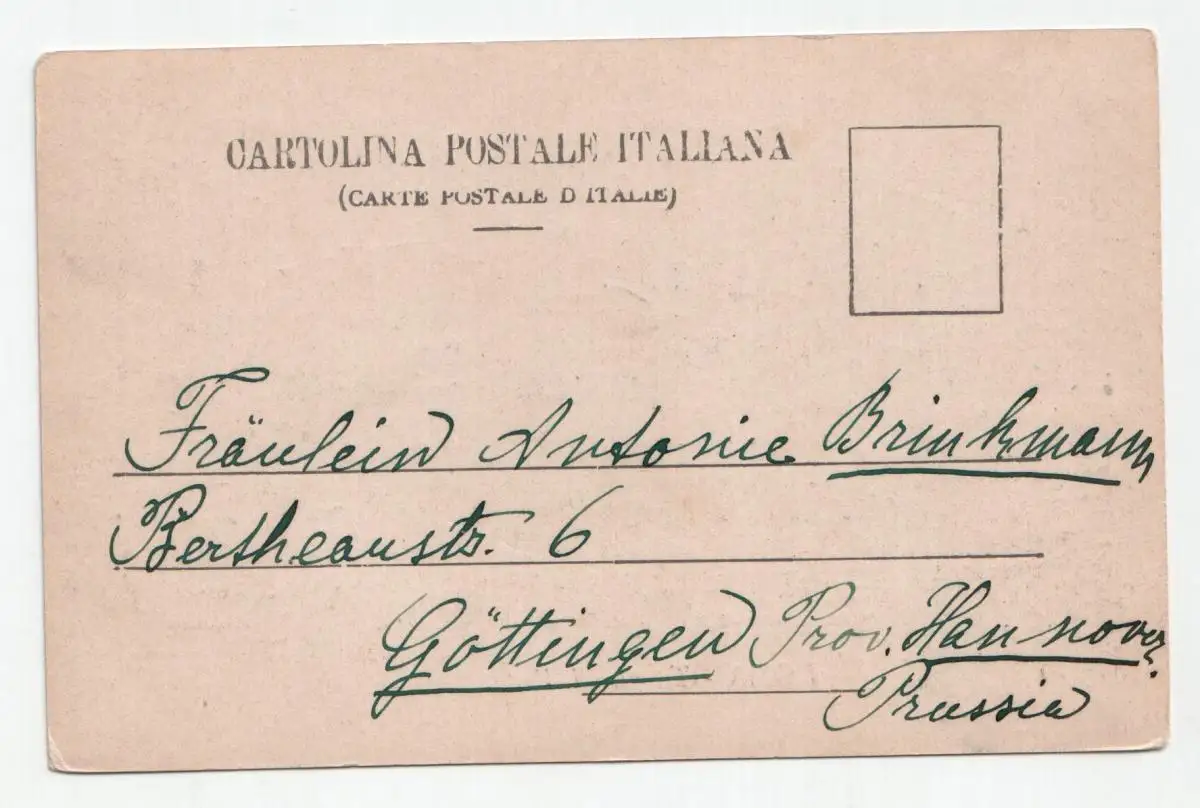 CARTOLINA POSTALE ITALIANA
(CARTE POSTALE D'ITALIE)
Fräulein Antonie Brinkmann
Bertheaustr. 6
Göttingen Prov. Hannover.
Prussia